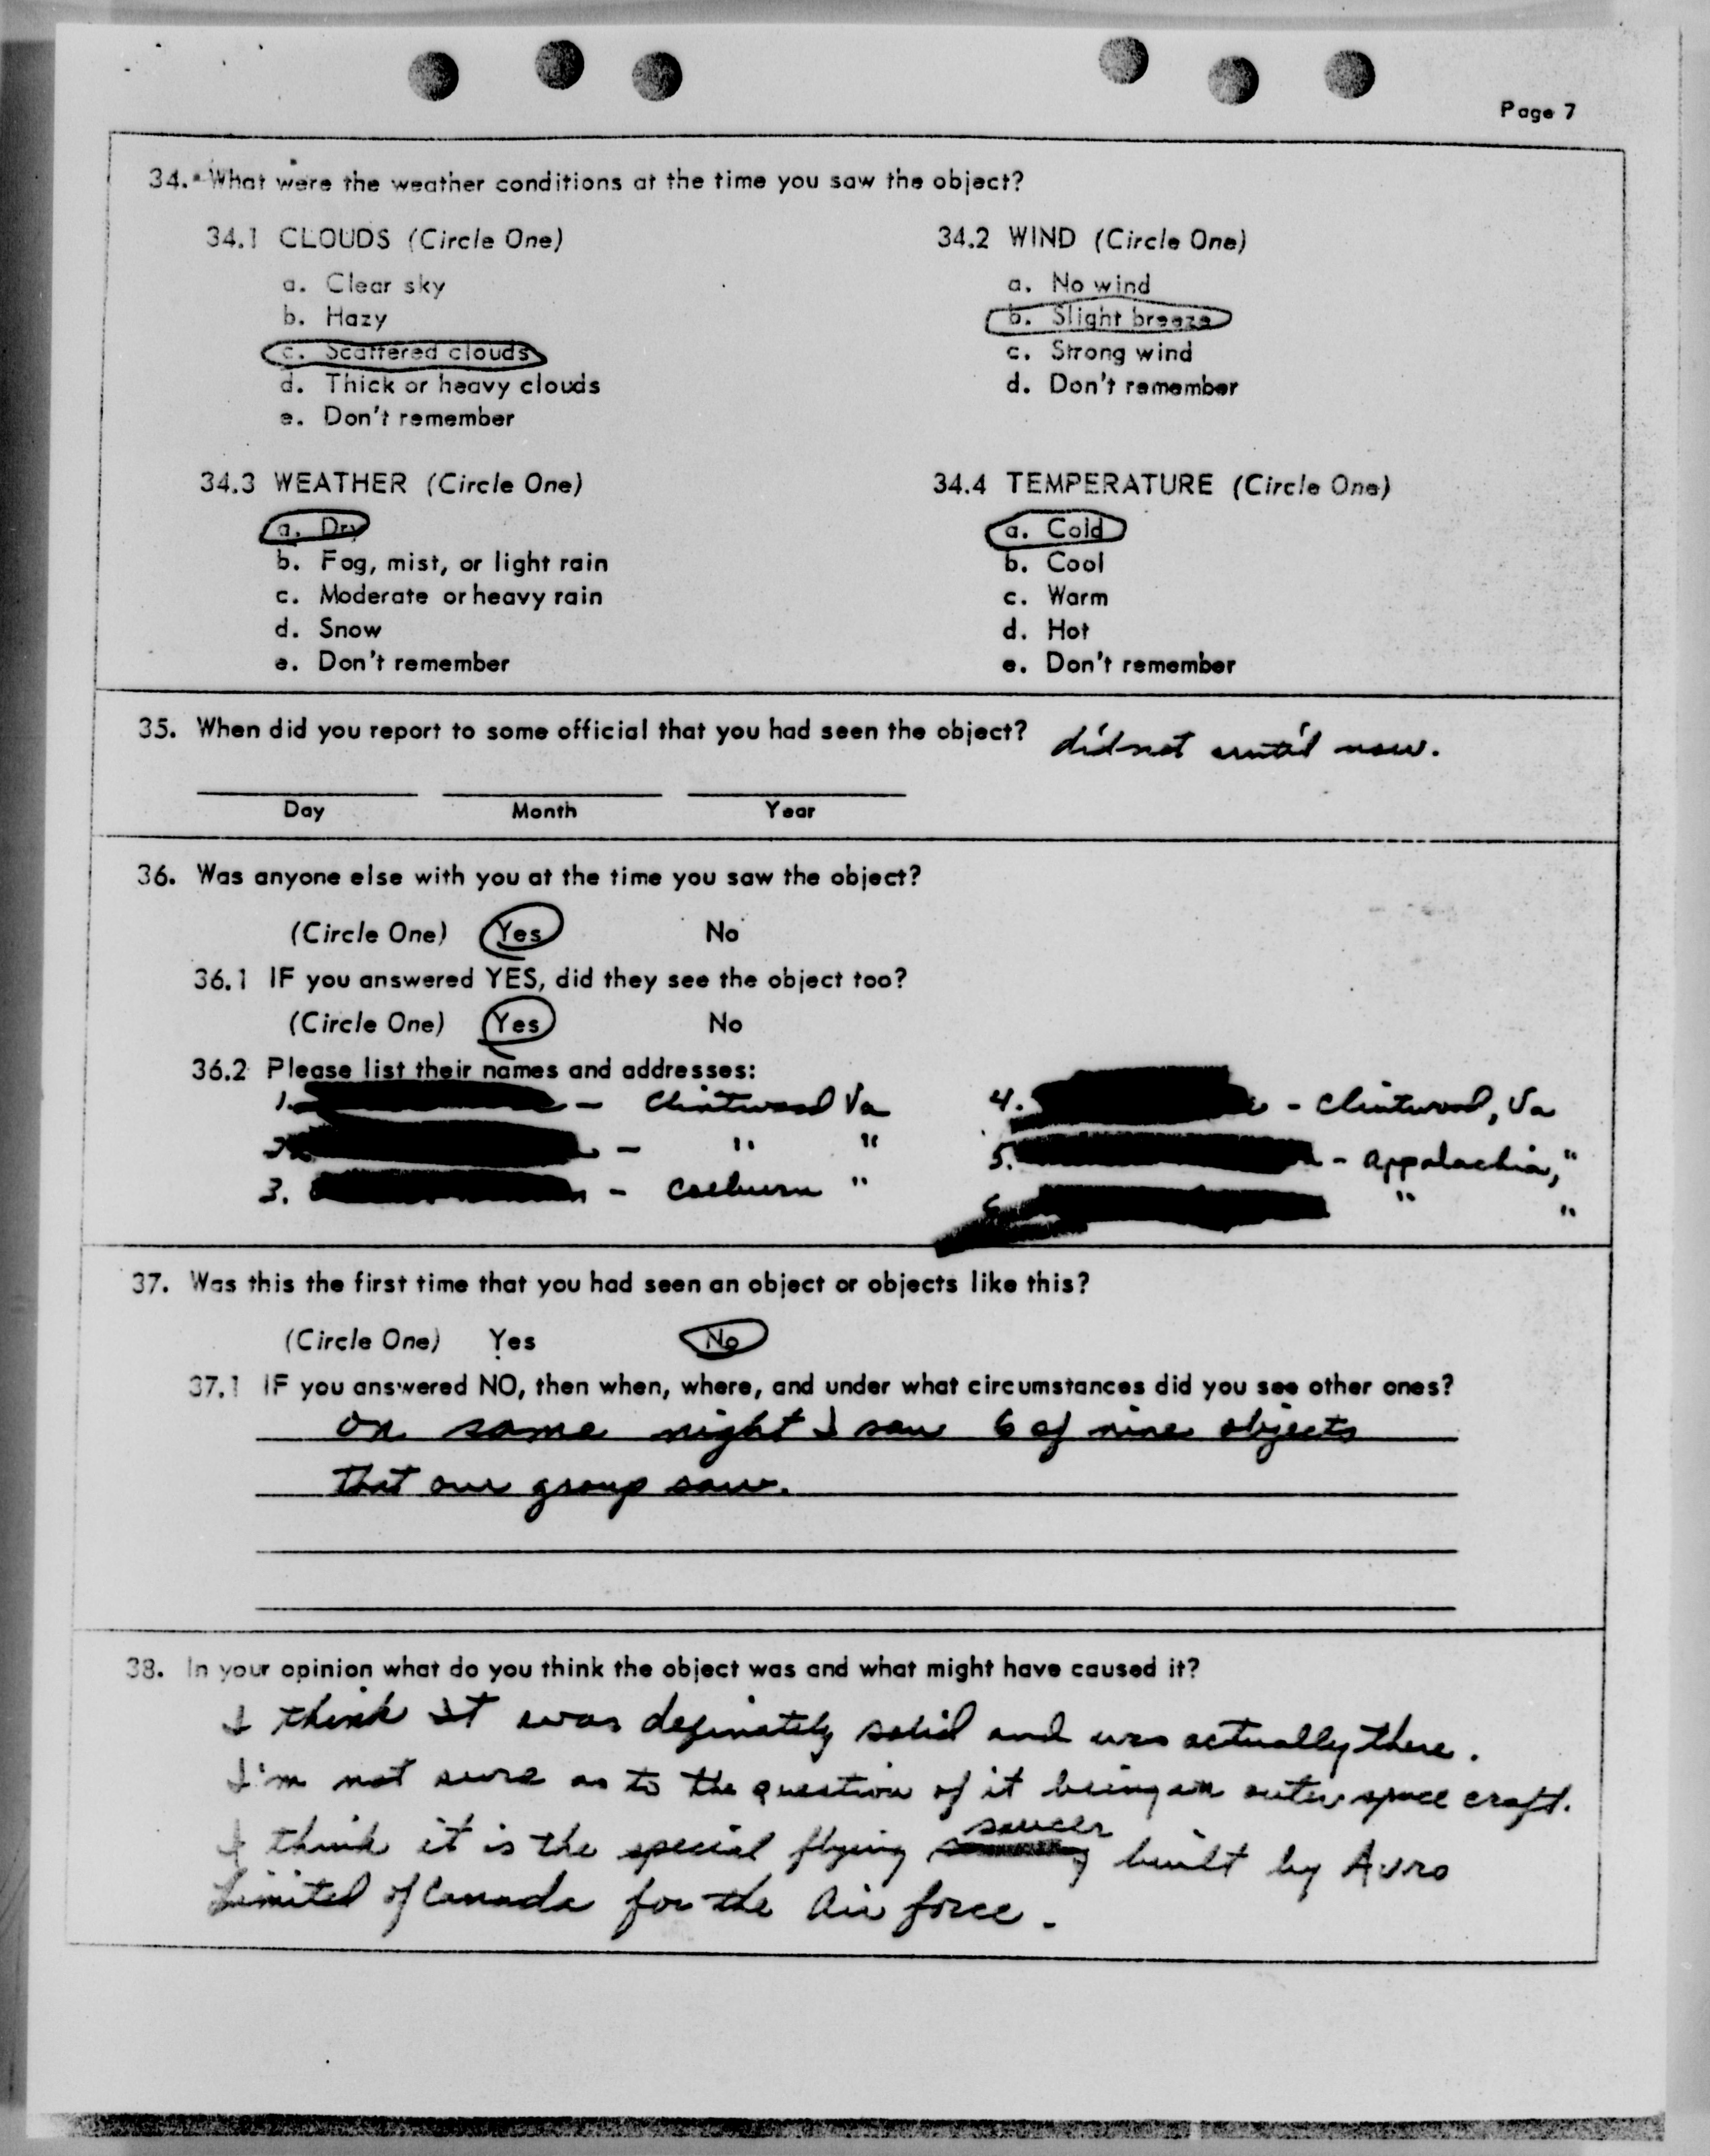 Page 7
34. What were the weather conditions at the time you saw the object?
34.1 CLOUDS (Circle One)
a. Clear sky
b. Hazy
c. Scattered clouds
d. Thick or heavy clouds
e. Don't remember
34.2 WIND (Circle One)
a. No wind
b. Slight breeze
c. Strong wind
d. Don't remember
34.3 WEATHER (Circle One)
a. Dry
b. Fog, mist, or light rain
c. Moderate or heavy rain
d. Snow
e. Don't remember
34.4 TEMPERATURE (Circle One)
a. Cold
b. Cool
c. Warm
d. Hot
e. Don't remember
35. When did you report to some official that you had seen the object? did not until now.
Day Month Year
36. Was anyone else with you at the time you saw the object?
(Circle One) Yes No
36.1 IF you answered YES, did they see the object too?
(Circle One) Yes No
36.2 Please list their names and addresses:
1. - Clintwood Va
2. - " "
3. - Coeburn "
4. - Clintwood, Va
5. - Appalachia, "
6. " "
37. Was this the first time that you had seen an object or objects like this?
(Circle One) Yes No
37.1 IF you answered NO, then when, where, and under what circumstances did you see other ones?
On same night I saw 6 of nine objects
that our group saw.
38. In your opinion what do you think the object was and what might have caused it?
I think it was definately solid and was actually there.
I'm not sure as to the question of it being an outer space craft.
I think it is the special flying saucer built by Avro
Limited of Canada for the Air force.